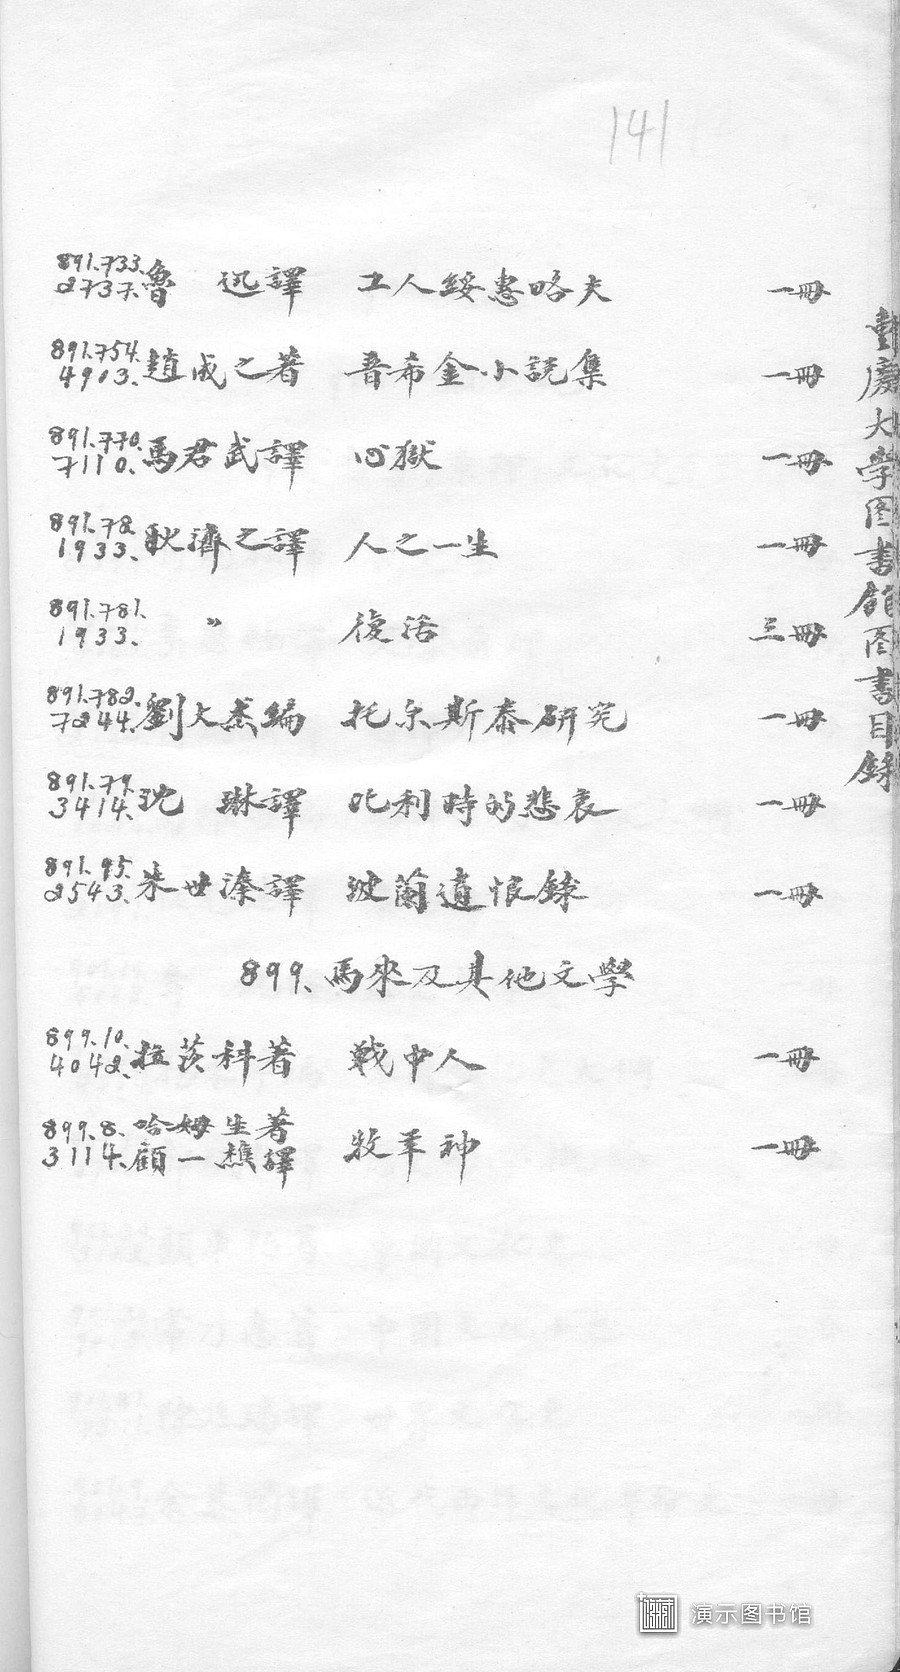 141
891.733. 2737. 魯 迅譯 工人綏惠略夫 一冊
891.754. 4903. 趙成之著 普希金小説集 一冊
891.770. 7110. 馬君武譯 心獄 一冊
891.78. 1933. 耿濟之譯 人之一生 一冊
891.781. 1933. 〃 復活 三冊
891.782. 7244. 劉大杰編 托尔斯泰研究 一冊
891.79. 3414. 沈 琳譯 比利時的悲哀 一冊
891.95. 2543. 朱世溱譯 波蘭遺恨錄 一冊
899. 馬來及其他文學
899.10. 4042. 拉茨科著 戰中人 一冊
899.8. 3114. 哈姆生著
顧一樵譯 牧羊神 一冊
重慶大学图書館图書目錄
演示图书馆